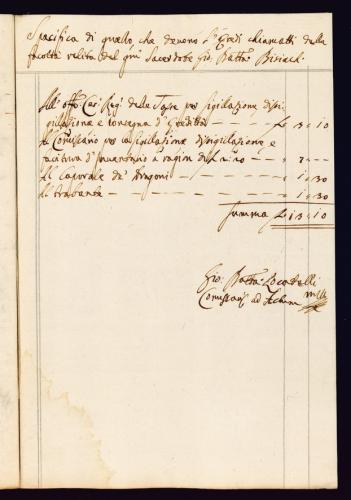 Specifica di quello, che devono l'Eredi chiamatti della
facoltà relita dal qm Sacerdote Gio: Batta: Bisiach.
All' offo Ces: Reg: delle Tasse per sigilazione disi-
gilazione e consegna d'Eredità – – – – £ 3 " 10
Al Comissario per la sigilazione disigilazione, e
fattura d'Inventario a ragion di – – – " 7 " –
Al Caporale de' Dragoni – – – – – – " 1 " 30
Al trabante – – – – – – – – " 1 " 30
Summa £ 13 " 10
Gio: Batta: Locatelli
Comissario ad